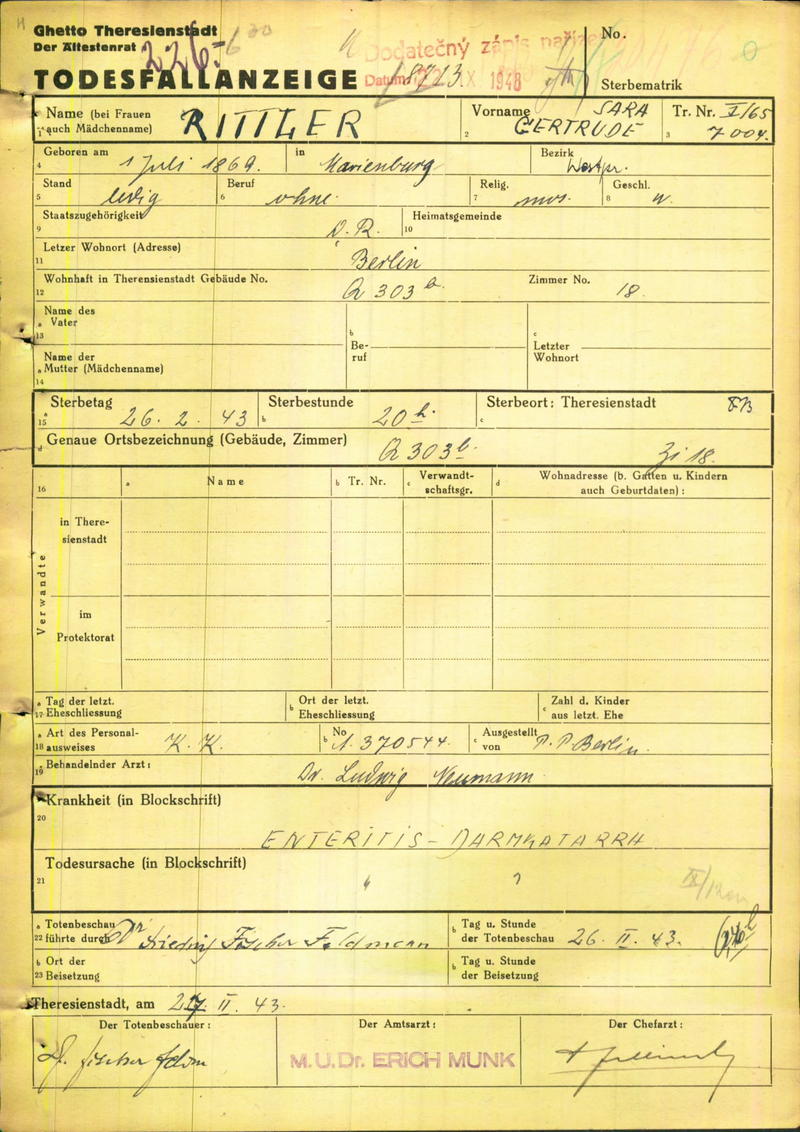 Ghetto Theresienstadt
Der Ältestenrat
TODESFALLANZEIGE
Dodatečný zápis nařízen
Datum: X 1948
8713
No.
Sterbematrik
Name (bei Frauen auch Mädchenname) RITTLER
Vorname SARA GERTRUDE
Tr. Nr. I/65 7004.
1 2 3
Geboren am 1 Juli 1869. in Marienburg Bezirk Westpr.
4
Stand ledig Beruf ohne. Relig. mos. Geschl. w.
5 6 7 8
Staatszugehörigkeit D.R. Heimatsgemeinde
9 10
Letzer Wohnort (Adresse) Berlin
11
Wohnhaft in Therensienstadt Gebäude No. Q 303 b. Zimmer No. 18.
12
Name des Vater
a 13
b Beruf
c Letzter Wohnort
Name der Mutter (Mädchenname)
a 14
Sterbetag 26. 2. 43 Sterbestunde 20 h. Sterbeort: Theresienstadt
a 15 b c
Genaue Ortsbezeichnung (Gebäude, Zimmer) Q 303 b. Zi 18.
d
16 a Name b Tr. Nr. c Verwandtschaftsgr. d Wohnadresse (b. Gatten u. Kindern auch Geburtdaten):
Verwandte
in Theresienstadt
im Protektorat
a 17 Tag der letzt. Eheschliessung b Ort der letzt. Eheschliessung c Zahl d. Kinder aus letzt. Ehe
a 18 Art des Personalausweises K. K. b No A. 370544. c Ausgestellt von P. P Berlin.
19 Behandelnder Arzt: Dr. Ludwig Neumann
Krankheit (in Blockschrift)
20
ENTERITIS - DARMKATARRH
Todesursache (in Blockschrift)
21
" "
a 22 Totenbeschau führte durch Dr Fischer Feldmann b Tag u. Stunde der Totenbeschau 26. II. 43.
b 23 Ort der Beisetzung b Tag u. Stunde der Beisetzung
Theresienstadt, am 27. II. 43.
Der Totenbeschauer: Der Amtsarzt: Der Chefarzt:
M.U.Dr. ERICH MUNK